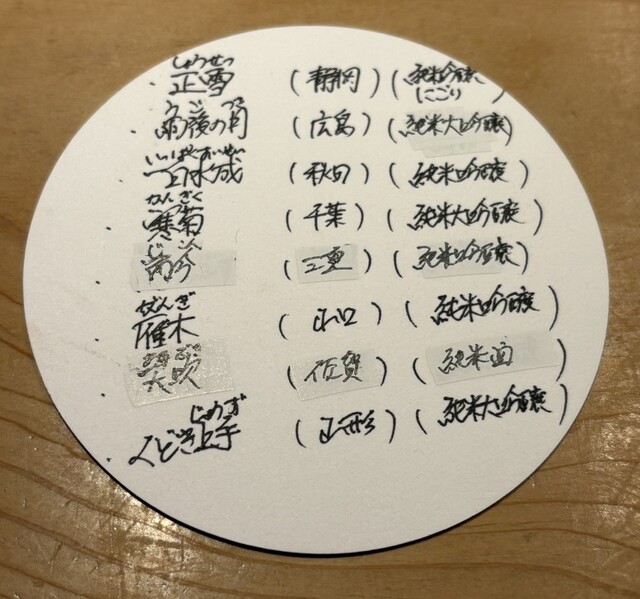 しょうせつ
・正雪 (静岡) (純米吟醸
にごり)
うご つき
・雨後の月 (広島) (純米大吟醸)
いっぱくすいせい
・一白水成 (秋田) (純米吟醸)
かんぎく
・寒菊 (千葉) (純米大吟醸)
じこん
・而今 (三重) (純米吟醸)
がんぎ
・雁木 (山口) (純米吟醸)
あまぶき
・天吹 (佐賀) (純米)
じょうず
・くどき上手 (山形) (純米大吟醸)